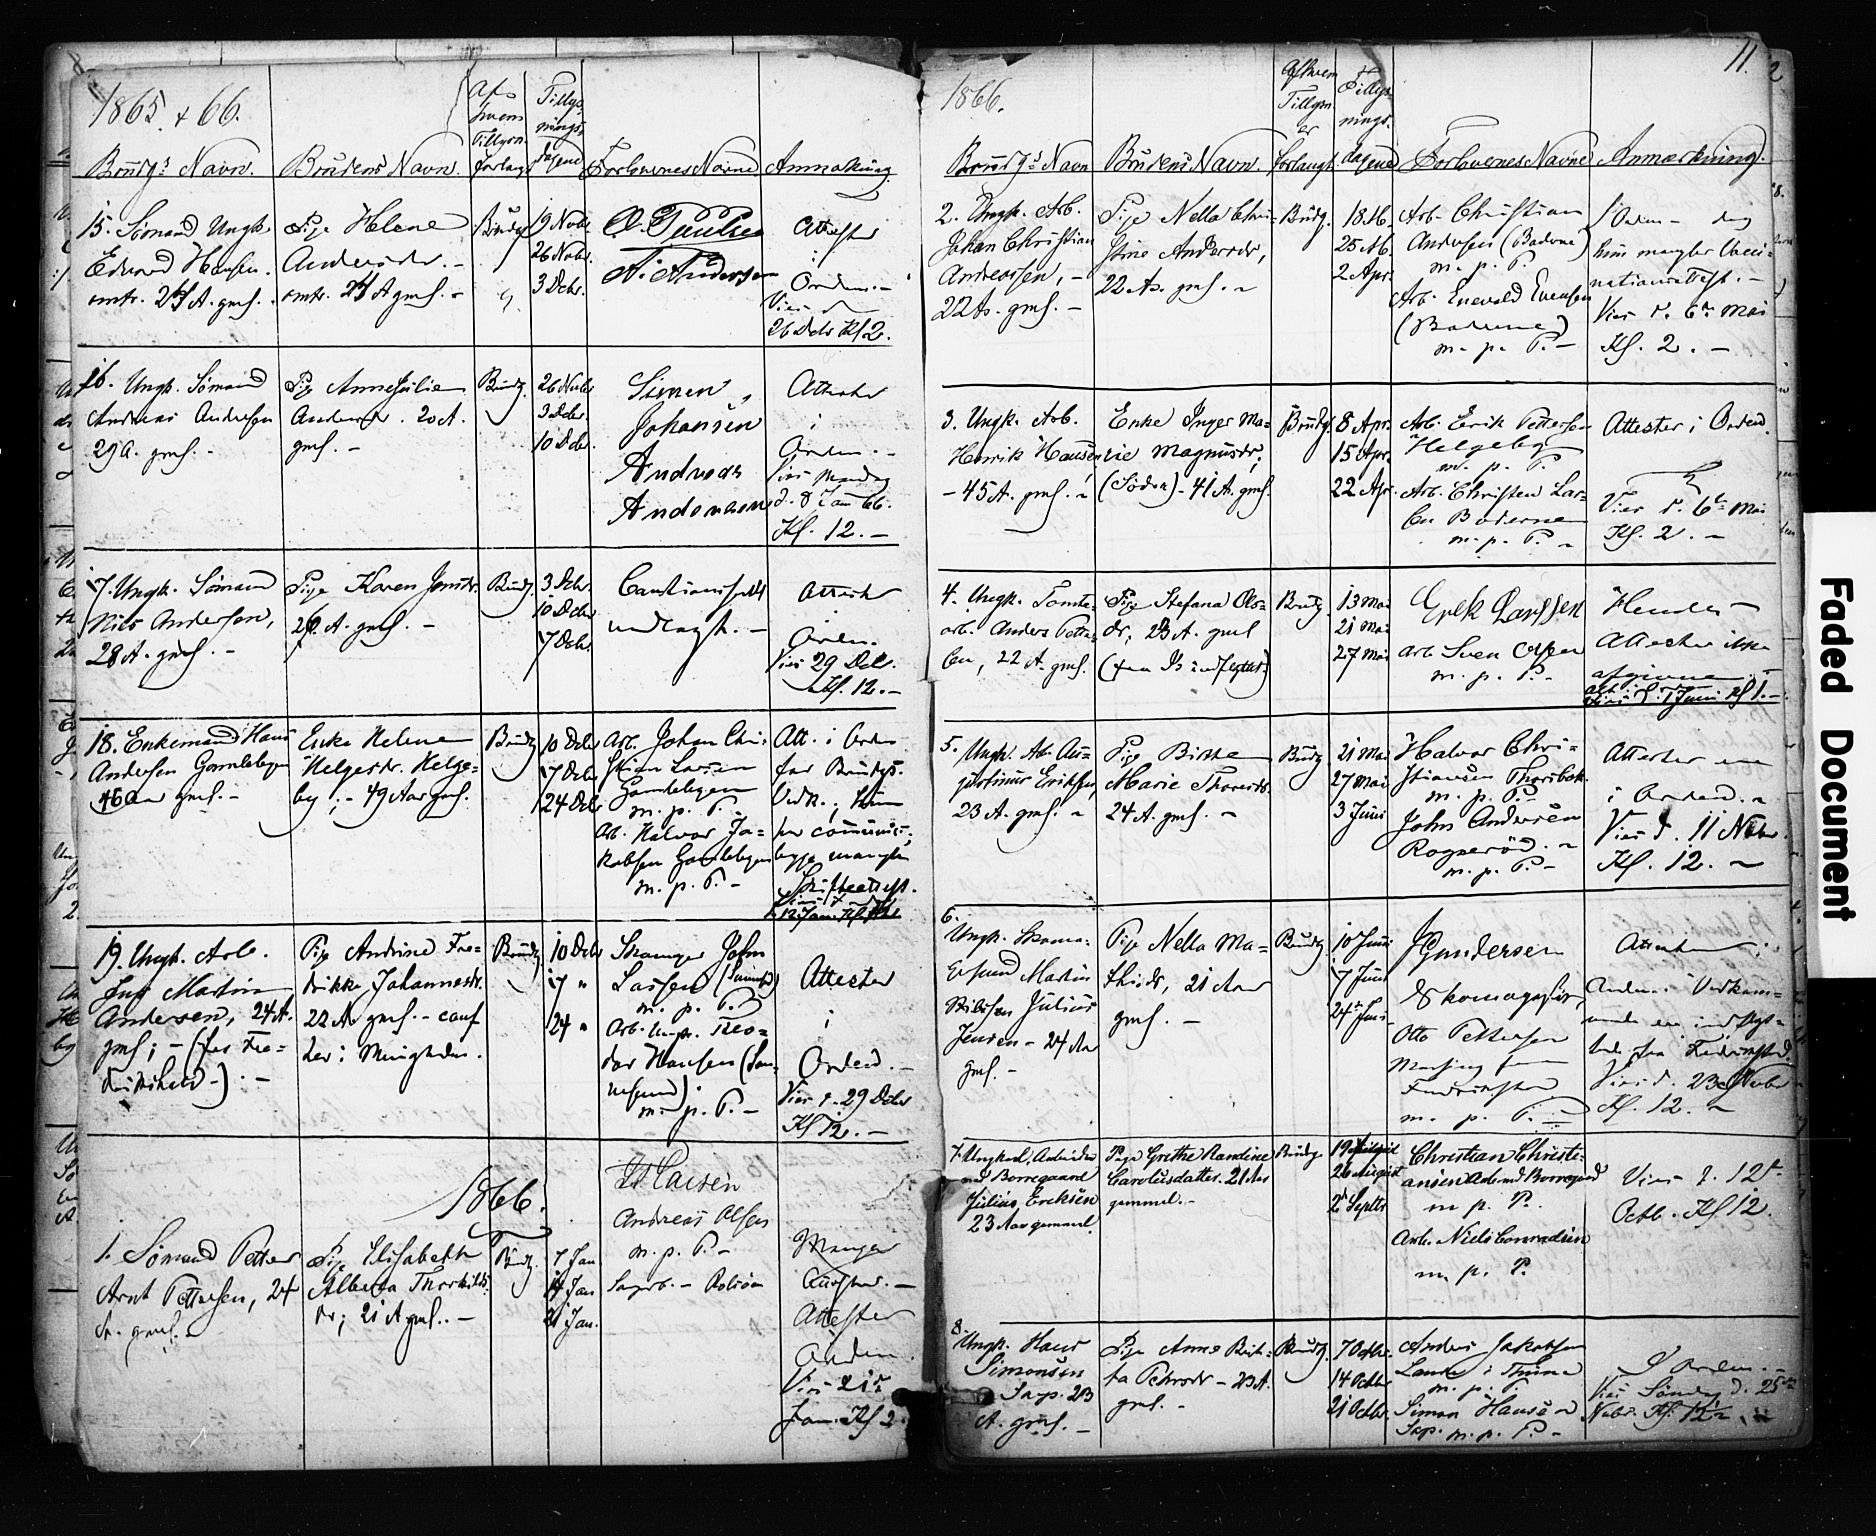 1865 + 66.
Brudg.s Navn. Brudens Navn. Af hvem Tillysn. forlagt Tillysningsdagene Forlovernes Navne Anmærkning.
15. Sømand Ungk.
Edvard Hansen.
omtr. 24 A. gml.
Pige Helene
Andersdr. -
omtr. 24 A gml. -
Brudg.
19 Novbr.
26 Novbr.
3 Decbr.
A. Andersen
Attester
i
Orden. -
Vies d.
26 Decbr Kl 2.
16. Ungk. Sømand
Andreas Andersen
29 A. gml. -
Pige Anne Julie
Andersdr. 20 A.
gml. -
Brudg.
26 Novbr
3 Decbr.
10 Decbr.
Simen
Johansen
Andreas
Andersen
Attester
i
Orden. -
Vies Mandag
d. 8 Jan 66.
Kl. 12. -
17. Ungk. Sømand
Nils Andersen,
28 A. gml. -
Pige Karen Jensdr.
26 A. gml. -
Brudg.
3 Decbr.
10 Decbr
17 Decbr.
Cautionsseddel
vedlagt. -
Attester
i
Orden.
Vies 29 Decbr.
Kl. 12. -
18. Enkemand Hans
Andersen Gamlebyen
46 Aar gml. -
Enke Helene
Helgesdr. Helge-
by; - 49 Aar gml.
Brudg.
10 Decbr
17 Decbr
24 Decbr
Arb. Johan Chri-
stian Larsen
Gamlebyen
m. p. P. -
Arb. Halvor Ja-
kobsen Gamlebyen
m. p. P. -
Att. i Orden
for Brudgs.
Vedk.; hun
har
begge mangler
Skifteattest.
12 Jan. Kl 12
19. Ungk. Arb.
Martin
Andersen, 24 A.
gml; - (fra Fre-
drikshald -) . -
Pige Andrine Fre-
drikke Johannesdr.
22 A. gml. - conf
her i Menigheden.
Brudg.
10 Decbr
17 "
24 "
John
Larsen
m. p. P.
Arb. Ungk. Theo-
dor Hansen (San-
nesund).
m. p. P. -
Attester
i
Orden. -
Vies d. 29 Decbr
Kl 12. -
1866.
1. Sømand Petter
Arnt Pettersen, 24
A. gml.
Pige Elisabeth
Alberta Thorkilds-
dr; 21 A gml. -
Brudg.
7 Jan
14 Jan
21 Jan.
Larsen
Andreas Olsen
m. p. P. -
Mangler
Attester. -
Attester
i
Orden.
Vies 21d
Jan. Kl 2.
1866.
11.
Brudg.s Navn Brudens Navn. Af hvem Tillysn. er forlangt Tillysnings.dagene Forlovernes Navne Anmærkning.
2. Ungk. Arb.
Johan Christian
Andreassen, -
22 A. gml. -
Pige Nella Chri-
stine Andersdr,
22 A. gml. -
Brudg.
18. M.
25 M.
2 Apr.
Arb. Christian
Andersen (Baderne)
m. p. P.
Arb. Enevold Evensen
(Baderne)
m. p. P. -
I Orden - dog
hun mangler Vacci-
nationsattest. -
Vies d. 6te Mai
Kl. 2. -
3. Ungk. Arb.
Henrik Hansen
- 45 A. gml. -
Enke Inger Ma-
rie Magnusdr;
- 41 A. gml.
Brudg.
8 Apr.
15 Apr.
22 Apr.
Arb. Erik Pettersen
Helgeby
m. p. P.
Arb. Christen Lar-
sen Baderne
m. p. P. -
Attester i Orden.
Vies d. 6te Mai
Kl. 2. -
4. Ungk. Tomte-
arb. Anders Petter-
sen, 22 A. gml.
Pige Stefana Ols-
dr, 23 A. gml
Brudg.
13 Mai
21 Mai
27 Mai
Erek Larssen
Arb Sven Olsen
m. p. P. -
Hendes
Attester ikke
afgivne
Vies d. 1 Juni Kl 1. -
5. Ungk. Arb. Au-
gustinus Eriksen,
23 A. gml. -
Pige Birthe
Marie Thoresdr.
24 A. gml. -
Brudg
21 Mai
27 Mai
3 Juni
Halvor Chri-
stiansen Thorsbek.
m. p. P. -
John Andersen
Rogserød. -
m. p. P. -
Attester ere
i Orden. -
Vies d. 11 Nvbr.
Kl. 12. -
6.
Ungk. Skoma-
gersvend Martin
Nielsen Julius
Jensen - 24 Aar
gml. -
Pige Nella Ma-
thisdr, 21 Aar
gml. -
Brudg.
10 Juni
17 Juni
24de Juni
J Gundersen
Skomager,
Otto Pettersen
Mosing fra
Fredrikstad
m. p. P. -
Attester i
Orden: Vedkom-
mende ere indflyt-
tede fra Fredrikstad
Vies d. 23 Novbr
Kl. 12. -
7. Ungkarl, Arbeider
ved Borregaard
Julius Ericksen
23 Aar gammel.
Pige Grethe Randine
Carolusdatter. 21 Aar
gammel. -
Brudg
19 August
26 August
2 Septbr.
Christian Christi-
ansen Arb ved Borregaard
m. p. P.
Arb. Niels Conradsen
m. p. P.
Vies d. 12te
Octb. Kl 12.
8.
Ungk. Hans
Simonsen
Sagb. 23
A. gml. -
Pige Anne Birt-
ta Petersdr - 23 A.
gml. -
Brudg.
7 Octbr.
14 Octbr
21 Octbr.
Anders Jakobsen
Lande i Thune
m. p. P.
Simon Hansen
Sagb. m. p. P. -
I Orden. -
Vies Søndag d. 25de
Nvbr. Kl. 12 -
Faded Document